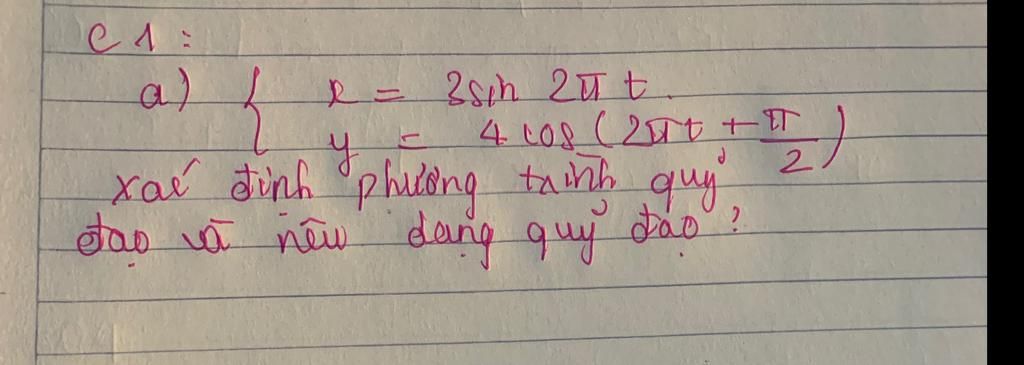 C1:
a) { x = 3sin 2πt.
y = 4 cos(2πt + π/2)
xác định phương trình quỹ
đạo và nêu dạng quỹ đạo ?